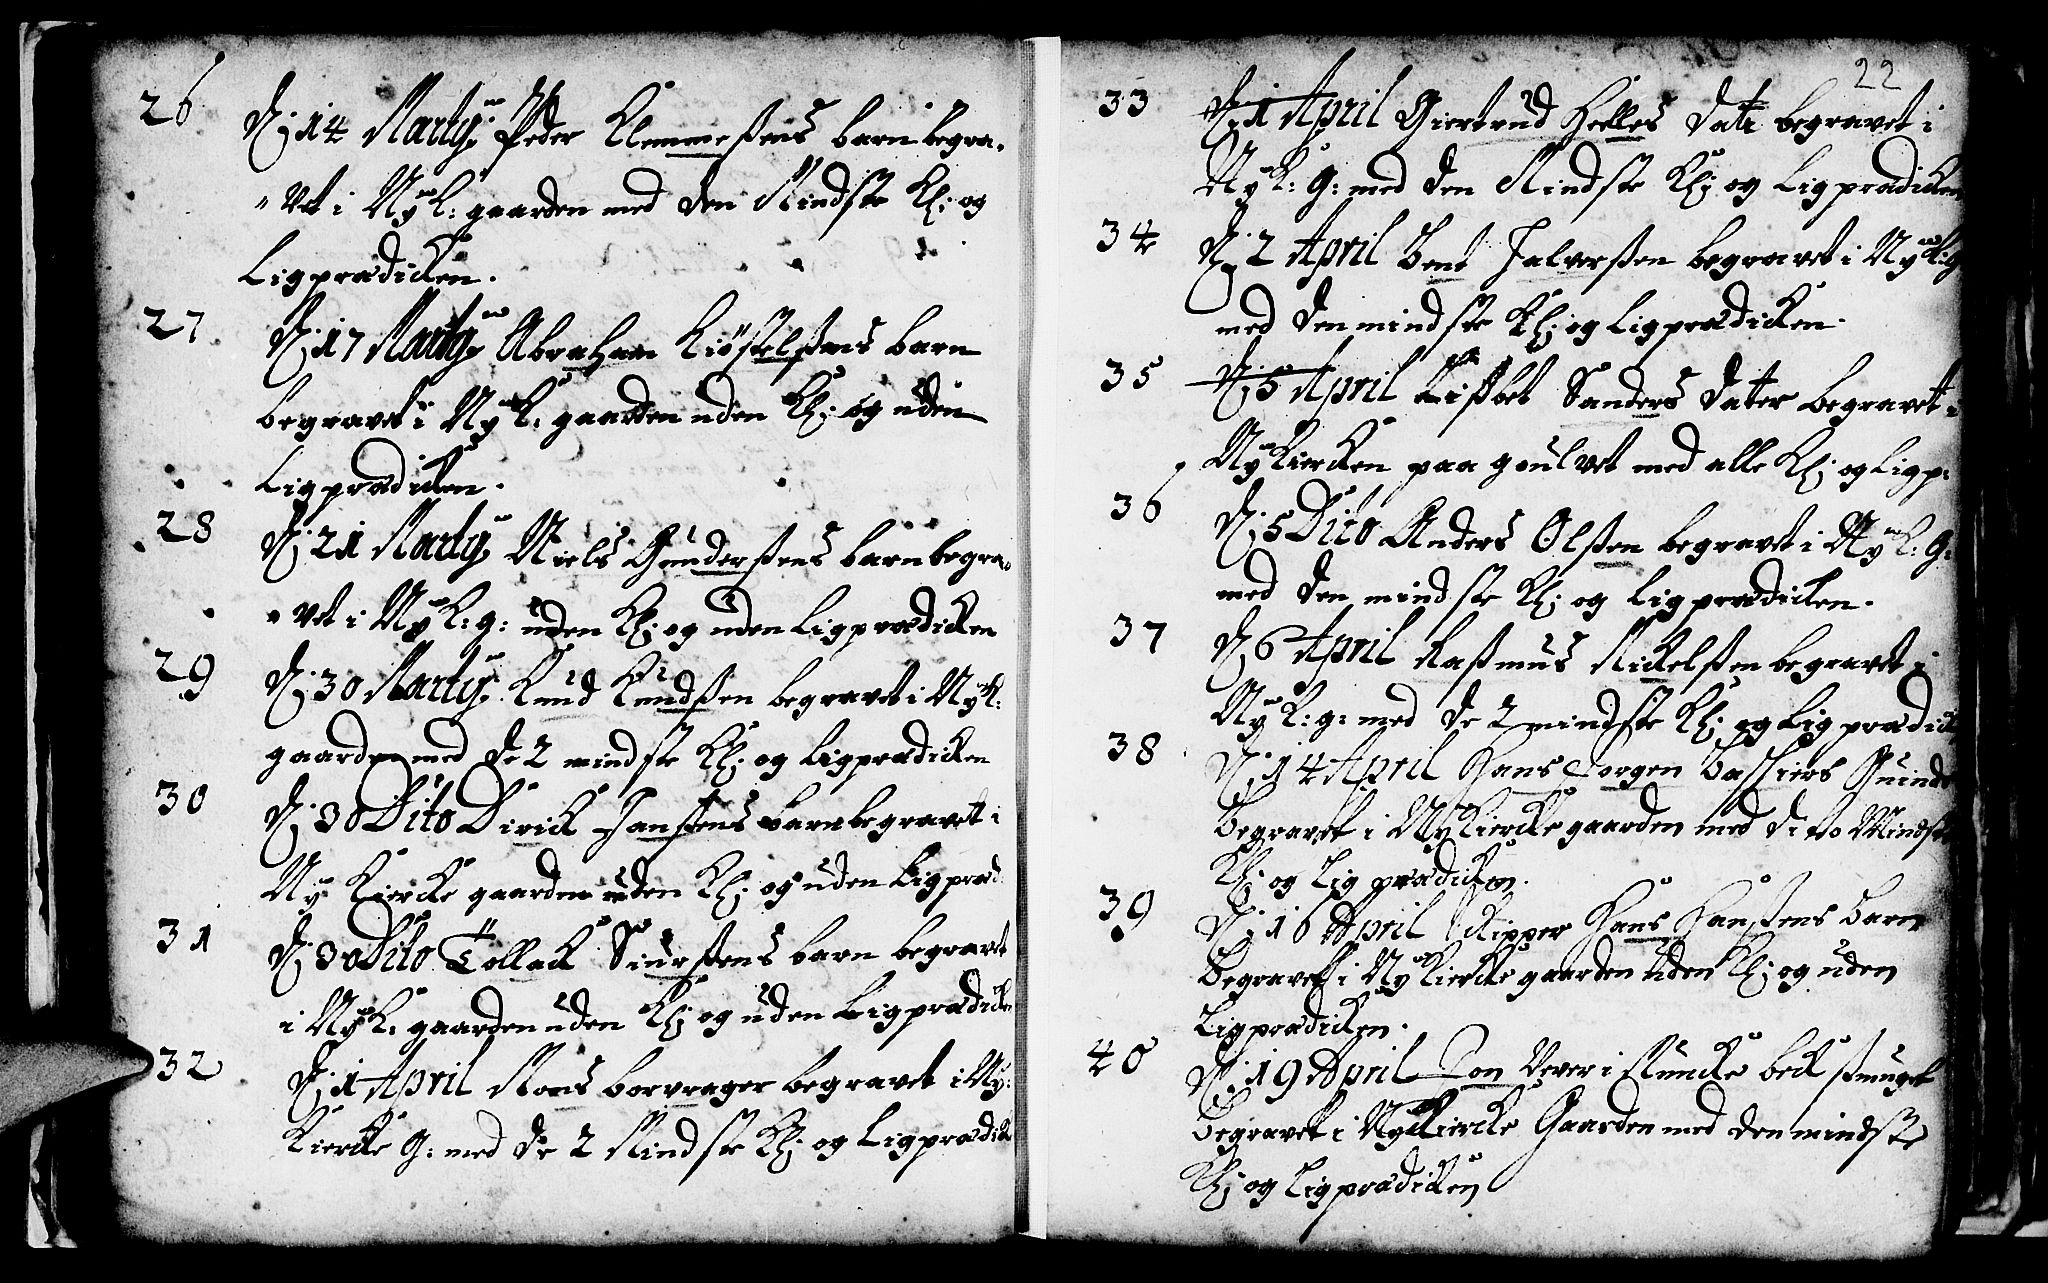 26 D. 14 Martij Peder Klemmeßens barn begra-
vet i Ny K: gaarden med den Mindste Kl: og
Ligprædicken.
27 D. 17 Martij Abraham Kiøstelßens barn
begravet i Ny K: gaarden uden Kl: og uden
Ligprædicken.
28 D. 21 Martij Niels Gunderßens barn begra-
vet i Ny K: g: uden Kl: og uden Ligprædicken
29 D. 30 Martij Knud Knudßen begravet i Ny K:
gaarden med de 2 mindste Kl: og Ligprædicken
30 D. 30 Dito Dirick Janßens barn begravet i
Ny Kiercke gaarden uden Kl: og uden Ligpræd
31 D. 30 Dito Tollack Siurßens barn begravet
i Ny K: gaarden uden Kl: og uden Ligprædicken
32 D. 1 April Mons borvrager begravet i Ny:
Kiercke G: med de 2 Mindste Kl: og Ligprædick
22
33 D. 1 April Giertrud Helles Dater begravet i
Ny K: G: med den Mindste Kl: og Ligprædicken
34 D. 2 April Bent Halverßen begravet i Ny K: g
med den mindste Kl: og Ligprædicken.
35 D. 5 April Lißbet Sanders Dater begravet i
Ny Kiercken paa goulvet med alle Kl: og Ligp:
36 D. 5 Dito Anders Olßen begravet i Ny K: G:
med den mindste Kl: og Ligprædicken.
37 D. 6 April Raßmus Mickelßen begravet i
Ny K: g: med de 2 mindste Kl: og Ligprædick
38 D. 14 April Hans Jørgen Quinde
Begravet i Ny Kiercke gaarden med dito Mindste
Kl: og Lig prædicken.
39 D. 16 April Skipper Hans Hanßens barn
Begravet i Ny Kiercke gaarden uden Kl: og uden
Ligprædicken.
40 D. 19 April Jon Vever i Muncke beck ßmuget
Begravet i Ny Kiercke Gaarden med den mindste
Kl: og Ligprædicken